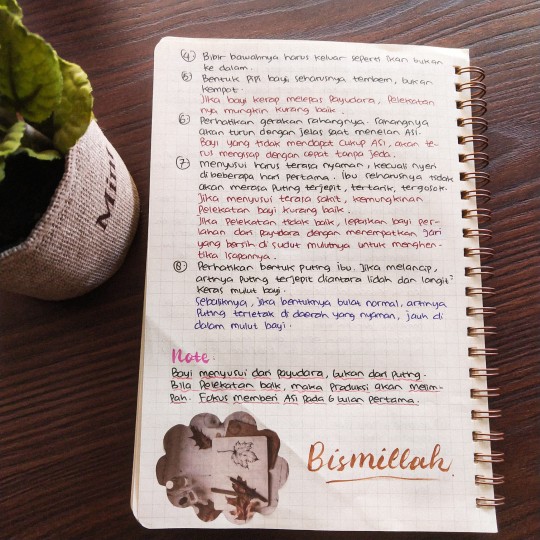 (4) Bibir bawahnya harus keluar seperti ikan bukan
ke dalam.
(5) Bentuk pipi bayi seharusnya tembem, bukan
kempot.
Jika bayi kerap melepas payudara, pelekatan
nya mungkin kurang baik.
(6) Perhatikan gerakan rahangnya. Rahangnya
akan turun dengan jelas saat menelan ASI.
Bayi yang tidak mendapat cukup ASI, akan te-
rus mengisap dengan cepat tanpa jeda.
(7) Menyusui harus terasa nyaman, kecuali nyeri
di beberapa hari pertama. Ibu seharusnya tidak
akan merasa puting terjepit, tertarik, tergosok.
Jika menyusui terasa sakit, kemungkinan
pelekatan bayi kurang baik.
Jika pelekatan tidak baik, lepaskan bayi per-
lahan dari payudara dengan menempatkan jari
yang bersih di sudut mulutnya untuk menghen-
tika isapannya.
(8) Perhatikan bentuk puting ibu. Jika melancip,
artinya puting terjepit diantara lidah dan langit²
keras mulut bayi.
Sebaliknya, jika bentuknya bulat normal, artinya
puting terletak di daerah yang nyaman, jauh di
dalam mulut bayi.
Note.
Bayi menyusui dari payudara, bukan dari puting.
Bila pelekatan baik, maka produksi akan melim-
pah. Fokus memberi ASI pada 6 bulan pertama.
Bismillah.